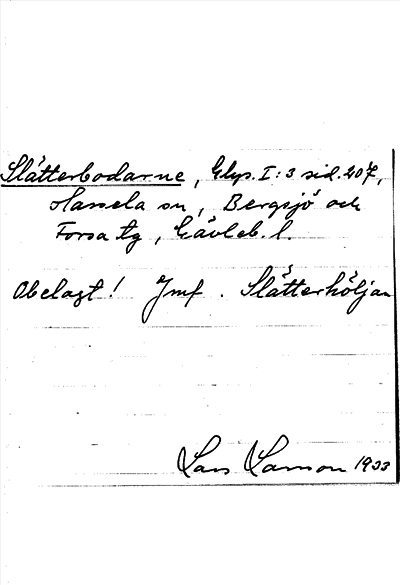 Slåtterbodarne, Glys. I:3 sid. 207,
Hassela sn, Bergsjö och
Forsa tg, Gävleb. l.
Obelagt! Jmf. Slåtterhöljan
Lars Larsson 1933